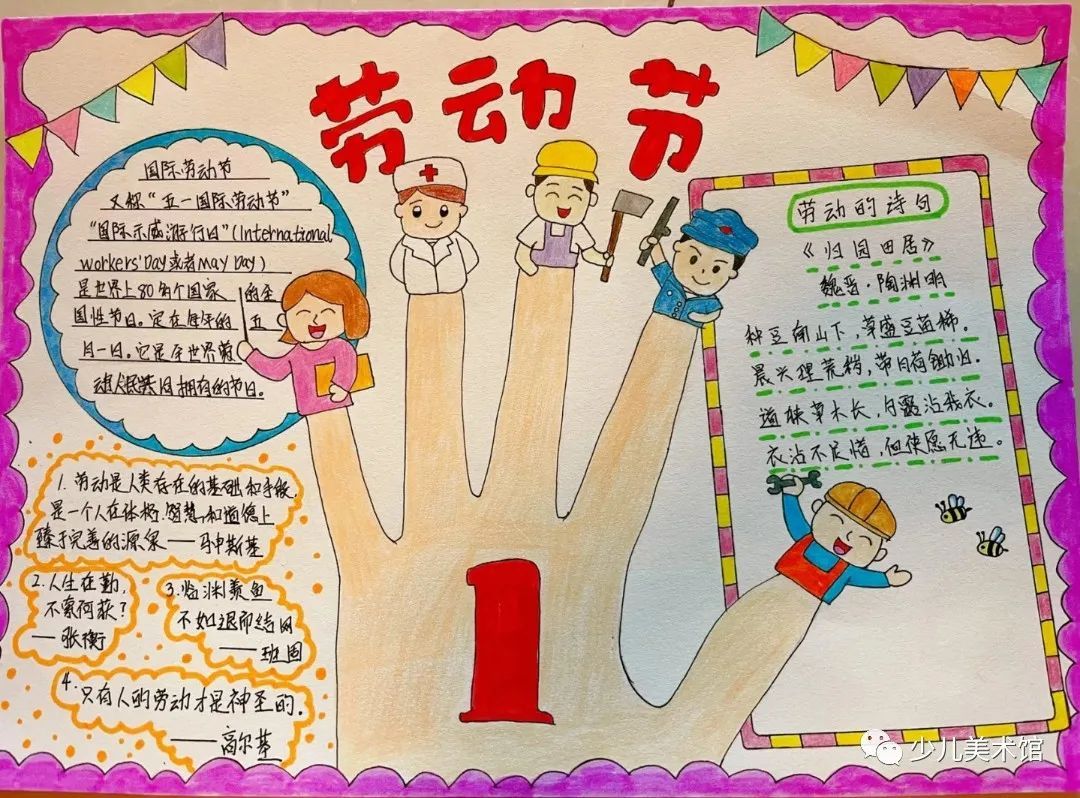 劳动节
国际劳动节
又称“五一国际劳动节”
“国际示威游行日”(International
workers'Day或者May Day)
是世界上80多个国家的全
国性节日。定在每年的五
月一日。它是全世界劳
动人民共同拥有的节日。
1.劳动是人类存在的基础和手段,
是一个人在体格.智慧.和道德上
臻于完善的源泉——马申斯基
2.人生在勤,
不索何获?
——张衡
3.临渊羡鱼
不如退而结网
——班固
4.只有人的劳动才是神圣的.
——高尔基
1
劳动的诗句
《归园田居》
魏晋·陶渊明
种豆南山下,草盛豆苗稀。
晨兴理荒秽,带月荷锄归。
道狭草木长,夕露沾我衣。
衣沾不足惜,但使愿无违。
少儿美术馆